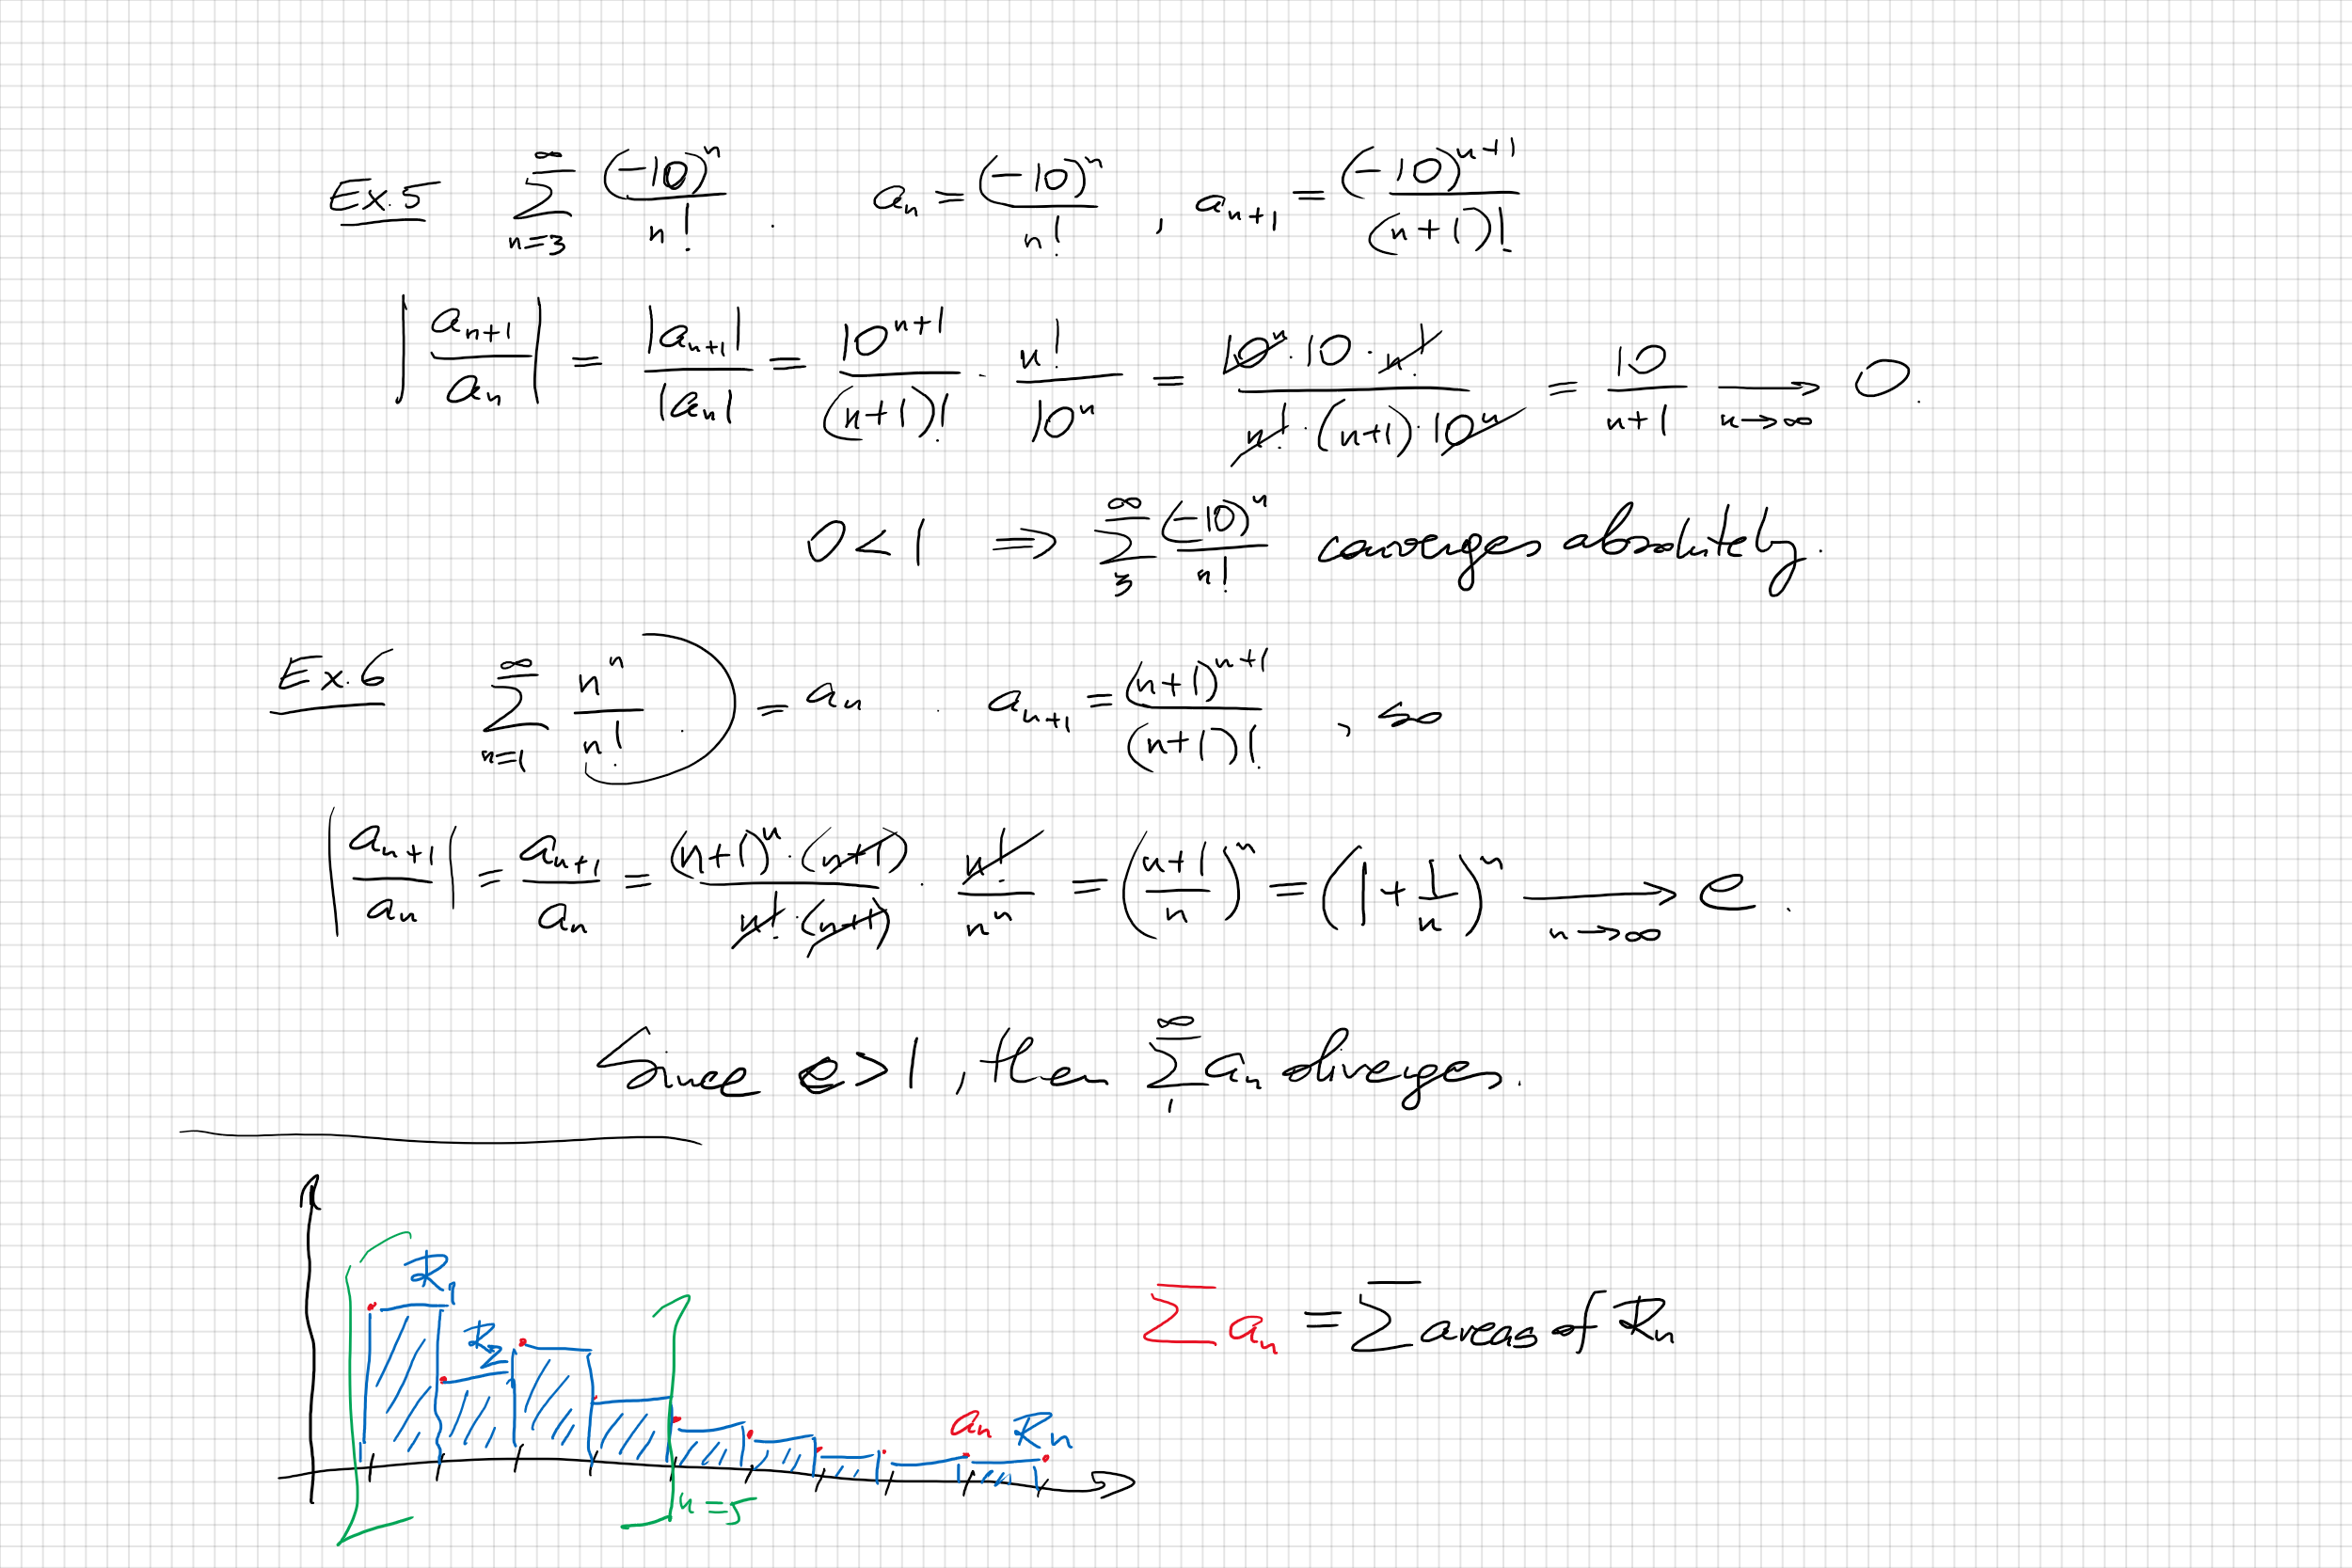 Ex.5 ∑_{n=3}^{∞} (-10)^n / n! . a_n = (-10)^n / n! , a_{n+1} = (-10)^{n+1} / (n+1)!
|a_{n+1} / a_n| = |a_{n+1}| / |a_n| = 10^{n+1} / (n+1)! · n! / 10^n = 10^n · 10 · n! / n! · (n+1) · 10^n = 10 / n+1 →_{n→∞} 0.
0 < 1 ⇒ ∑_{3}^{∞} (-10)^n / n! converges absolutely.
Ex.6 ∑_{n=1}^{∞} n^n / n! . ) = a_n . a_{n+1} = (n+1)^{n+1} / (n+1)! , so
|a_{n+1} / a_n| = a_{n+1} / a_n = (n+1)^n · (n+1) / n! · (n+1) · n! / n^n = (n+1 / n)^n = (1 + 1/n)^n →_{n→∞} e .
Since e > 1 , then ∑_{1}^{∞} a_n diverges.
R_1
R_2
∑ a_n = ∑ areas of R_n
a_n R_n
n = 5